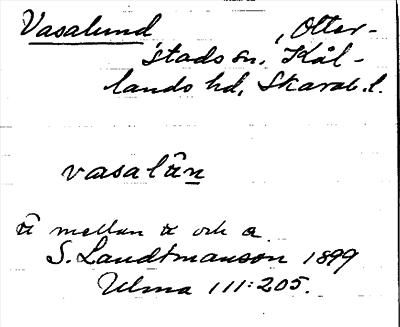 Vasalund, Otter-
stads sn, Kål-
lands hd, Skarab. l.
vasalūn
mellan och a
S. Landtmanson 1899
Ulma 111:205.